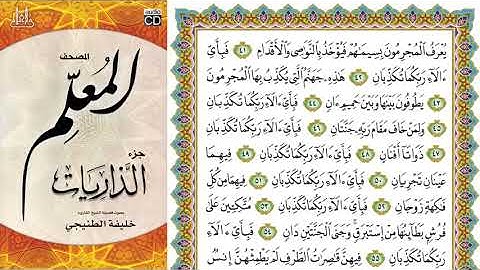 audio
CD
المصحف
المُعلِّم
جزء
الذاريات
بصوت فضيلة الشيخ القارئ
خليفة الطنيجي
يُعْرَفُ الْمُجْرِمُونَ بِسِيمَاهُمْ فَيُؤْخَذُ بِالنَّوَاصِي وَالْأَقْدَامِ ٤١ فَبِأَيِّ
ءَالَاءِ رَبِّكُمَا تُكَذِّبَانِ ٤٢ هَٰذِهِ جَهَنَّمُ الَّتِي يُكَذِّبُ بِهَا الْمُجْرِمُونَ
٤٣ يَطُوفُونَ بَيْنَهَا وَبَيْنَ حَمِيمٍ ءَانٍ ٤٤ فَبِأَيِّ ءَالَاءِ رَبِّكُمَا تُكَذِّبَانِ
٤٥ وَلِمَنْ خَافَ مَقَامَ رَبِّهِ جَنَّتَانِ ٤٦ فَبِأَيِّ ءَالَاءِ رَبِّكُمَا تُكَذِّبَانِ
٤٧ ذَوَاتَا أَفْنَانٍ ٤٨ فَبِأَيِّ ءَالَاءِ رَبِّكُمَا تُكَذِّبَانِ ٤٩ فِيهِمَا
عَيْنَانِ تَجْرِيَانِ ٥٠ فَبِأَيِّ ءَالَاءِ رَبِّكُمَا تُكَذِّبَانِ ٥١ فِيهِمَا مِن كُلِّ
فَٰكِهَةٍ زَوْجَانِ ٥٢ فَبِأَيِّ ءَالَاءِ رَبِّكُمَا تُكَذِّبَانِ ٥٣ مُتَّكِئِينَ عَلَىٰ
فُرُشٍ بَطَائِنُهَا مِنْ إِسْتَبْرَقٍ وَجَنَى الْجَنَّتَيْنِ دَانٍ ٥٤ فَبِأَيِّ
ءَالَاءِ رَبِّكُمَا تُكَذِّبَانِ ٥٥ فِيهِنَّ قَٰصِرَٰتُ الطَّرْفِ لَمْ يَطْمِثْهُنَّ إِنسٌ